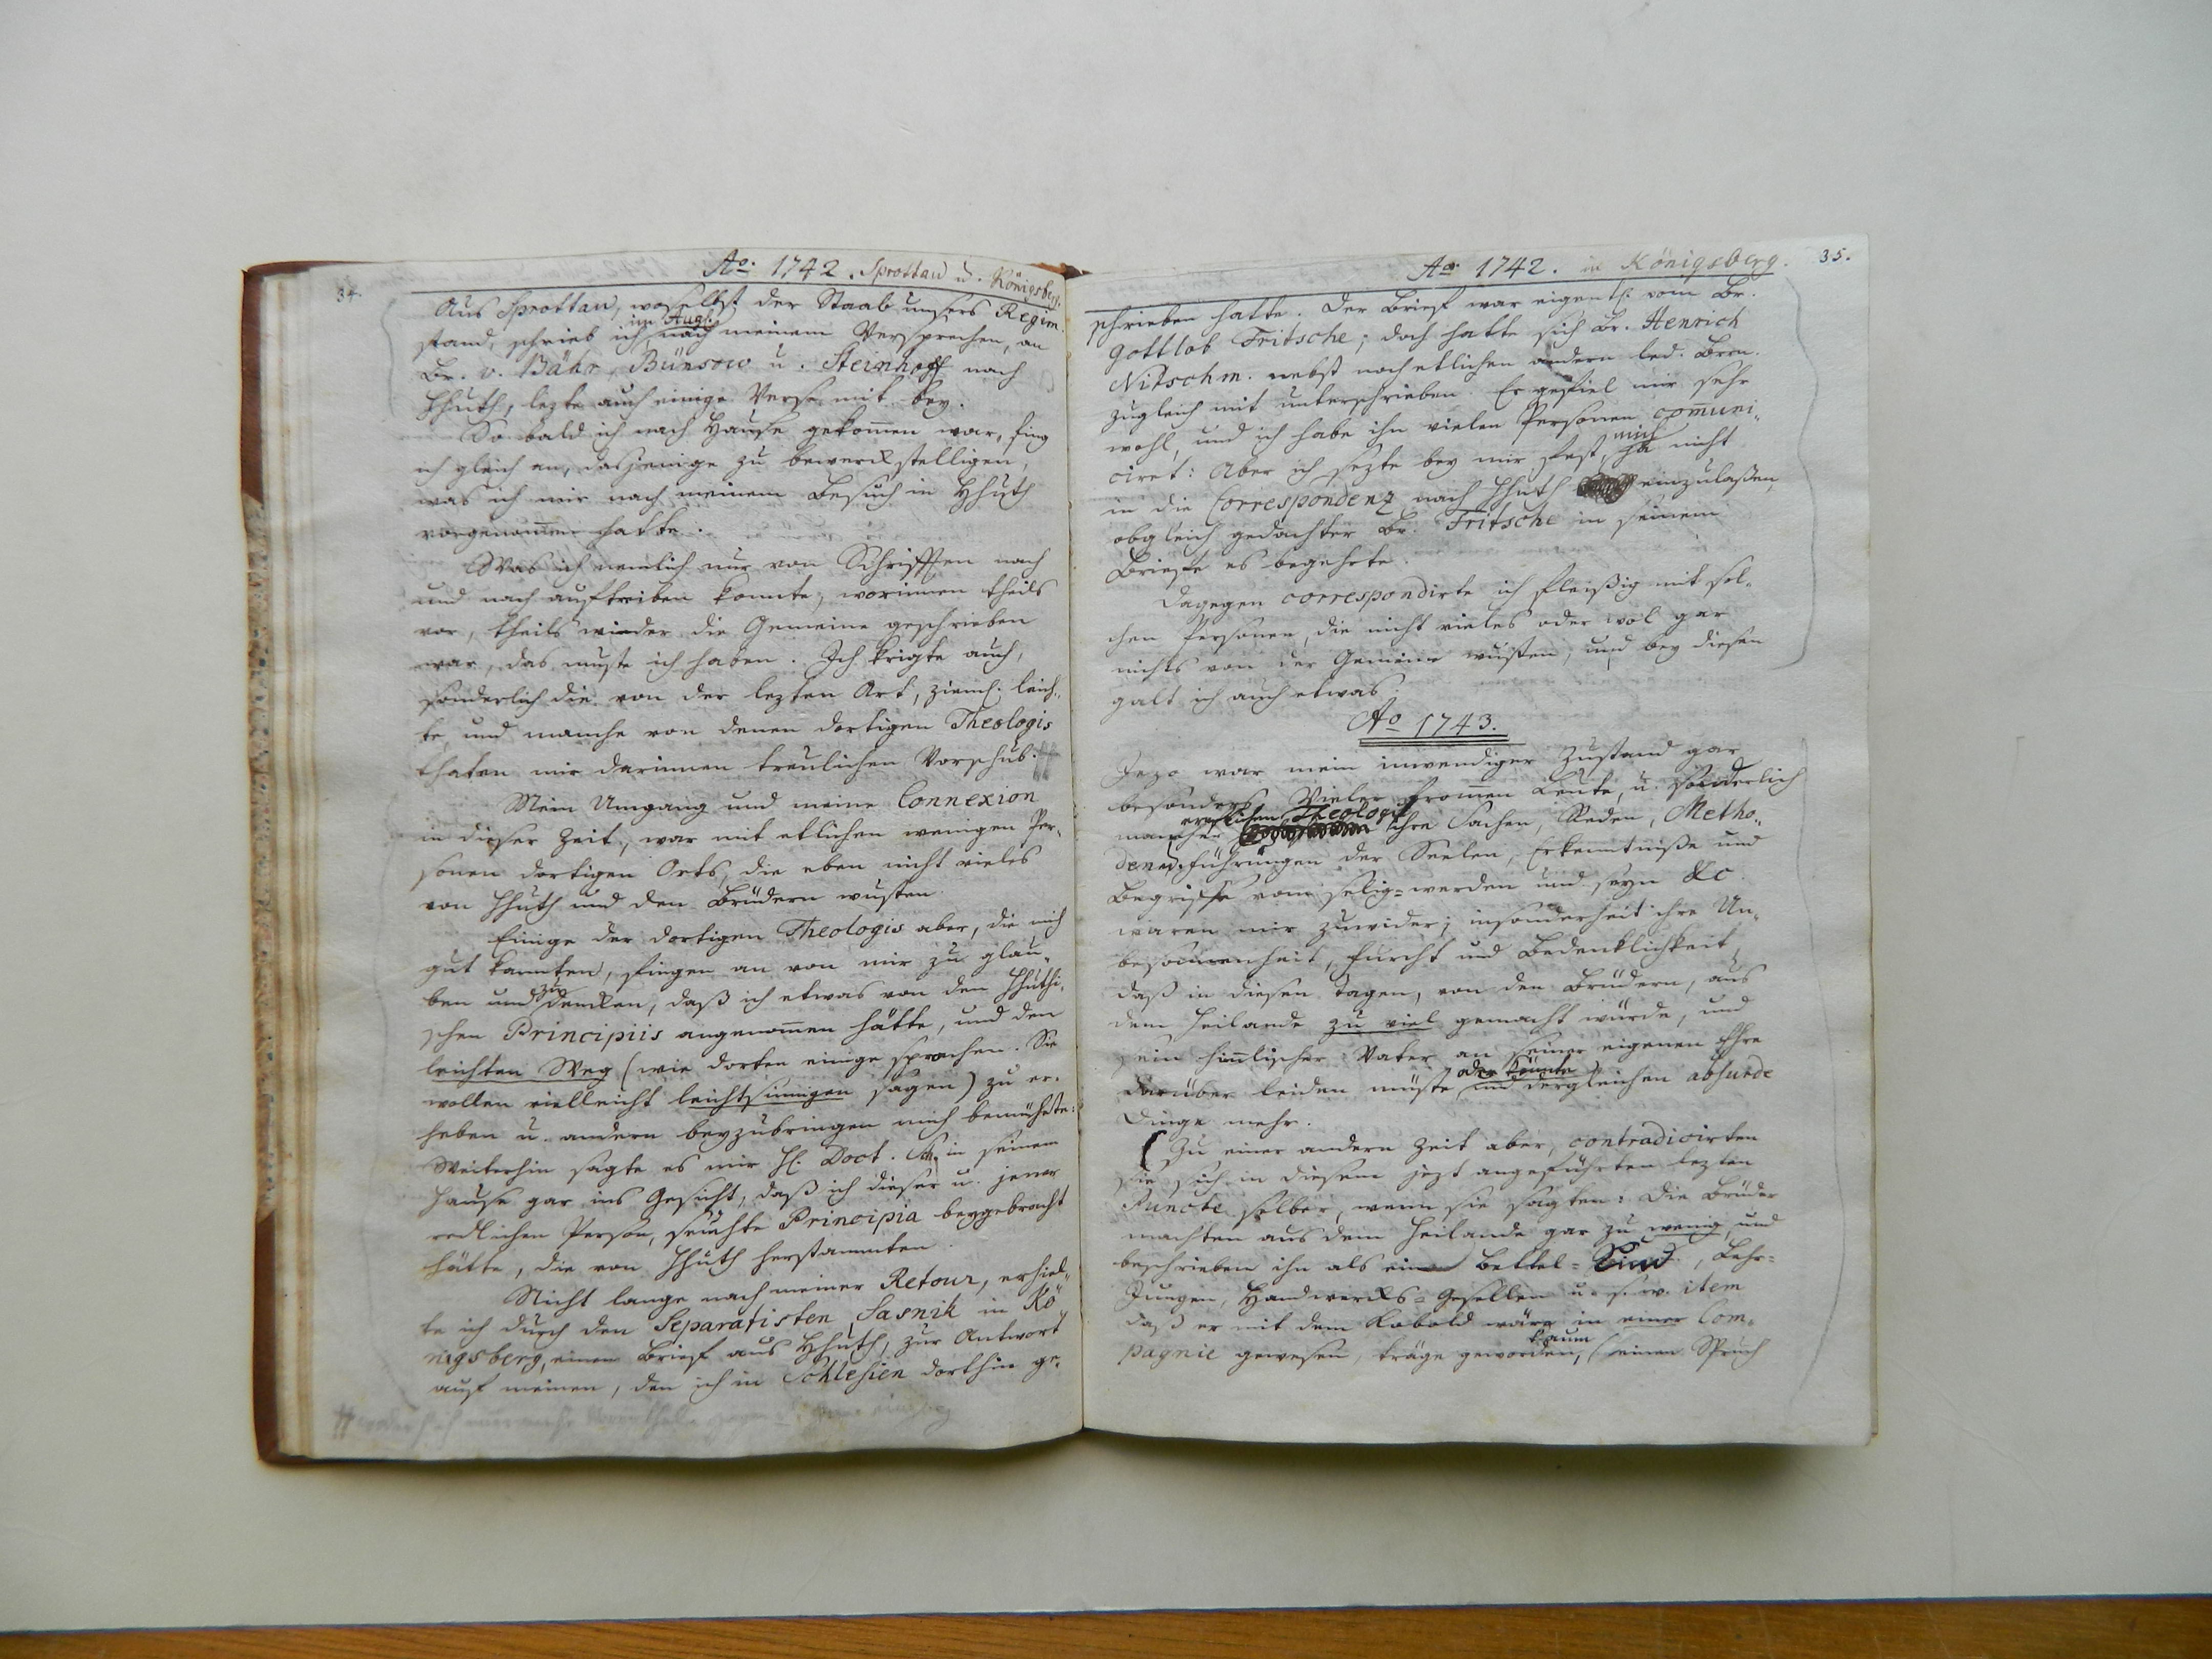 34.
Ao. 1742. Sprottau u. Königsberg.
Aus Sprottau, woselbst der Staab unsers Regim.
stand, schrieb ich im Aug. nach meinem Versprechen, an
Br. v. Bähr, Bünsow u. Steinhoff nach
Hhuth, legte auch einige Verse mit bey.
So bald ich nach Hause gekom̄en war, fing
ich gleich an, dasjenige zu bewerckstelligen,
was ich mir nach meinem Besuch in Hhuth
vorgenom̄en hatte.
Was ich nemlich nur von Schrifften nach
und nach auftreiben konnte, worinnen theils
vor, theils wieder die Gemeine geschrieben
war, das muste ich haben. Ich krigte auch,
sonderlich die von der lezten Art, zieml. leich-
te, und manche von denen dortigen Theologis
thaten mir darinnen treulichen Vorschub.
Mein Umgang und meine Connexion
in dieser Zeit, war mit etlichen wenigen Per-
sonen dortigen Orts, die eben nicht vieles
von Hhuth und den Brüdern wusten.
Einige der dortigen Theologis aber, die mich
gut kannten, fingen an von mir zu glau-
ben und zu dencken, daß ich etwas von den Hhuthi-
schen Principiis angenom̄en hätte, und den
leichten Weg (wie dorten einige sprachen. Sie
wollen vielleicht leichtsinnigen sagen) zu er-
heben u. andern beyzubringen mich bemühete:
Weiterhin sagte es mir H. Doct. in seinem
Hause gar ins Gesicht, daß ich dieser u. jener
redlichen Person, seuchte Principia beygebracht
hätte, die von Hhuth herstammten.
Nicht lange nach meiner Retour, erhiel-
te ich durch den Separatisten Sasnik in Kö-
nigsberg, einen Brief aus Hhuth, zur Antwort
auf meinen, den ich in Schlesien dorthin ge-
35.
Ao. 1742. in Königsberg.
schrieben hatte. Der Brief war eigentl. vom Br.
Gottlob Fritsche; doch hatte sich Br. Henrich
Nitschm. nebst noch etlichen andern led. Brrn.
zugleich mit unterschrieben. Er gefiel mir sehr
wohl, und ich habe ihn vielen Personen com̄uni-
ciret: Aber ich sezte bey mir fest, mich ja nicht
in die Correspondenz nach Hhuth einzulaßen,
obgleich gedachter Br. Fritsche in seinem
Briefe es begehrte.
Dagegen correspondirte ich fleißig mit sol-
chen Personen, die nicht vieles oder wol gar
nichts von der Gemeine wusten, und bey diesen
galt ich auch etwas.
Ao 1743.
Jezo war mein inwendiger Zustand gar
besonders. Vieler from̄en Leute, u. sonderlich
mancher Theologis ihre Sachen, Reden, Metho-
den, Führungen der Seelen, Erkenntniße und
Begriffe vom selig-werden und seyn &c.
waren mir zuwider; insonderheit ihre Un-
besonnenheit, Furcht und Bedenklichkeit,
daß in diesen Tagen, von den Brüdern, aus
dem Heilande zu viel gemacht würde, und
sein him̄lischer Vater an seiner eigenen Ehre
darüber leiden müste oder könnte und dergleichen absurde
Dinge mehr.
(Zu einer andern Zeit aber, contradicirten
sie sich in diesem jezt angeführten lezten
Puncte selber, wenn sie sagten: Die Brüder
machten aus dem Heilande gar zu wenig, und
beschrieben ihn als ein Bettel-Kind, Lehr-
Jungen, Handwercks-Gesellen u. s. w. item
daß er mit dem Kobold wäre in einer Com-
pagnie gewesen, träge geworden, kaum (einen Spruch